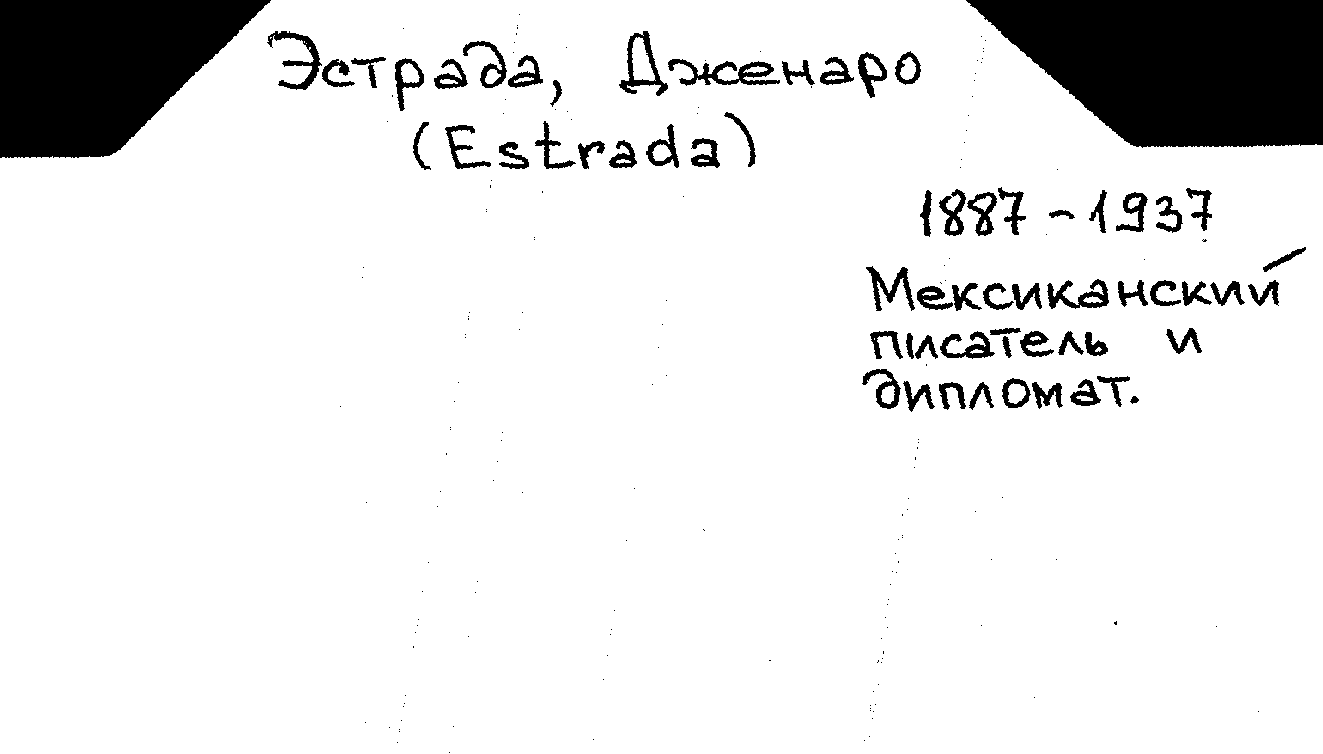 Эстрада, Дженаро
(Estrada)
1887 - 1937
Мексиканский
писатель и
дипломат.